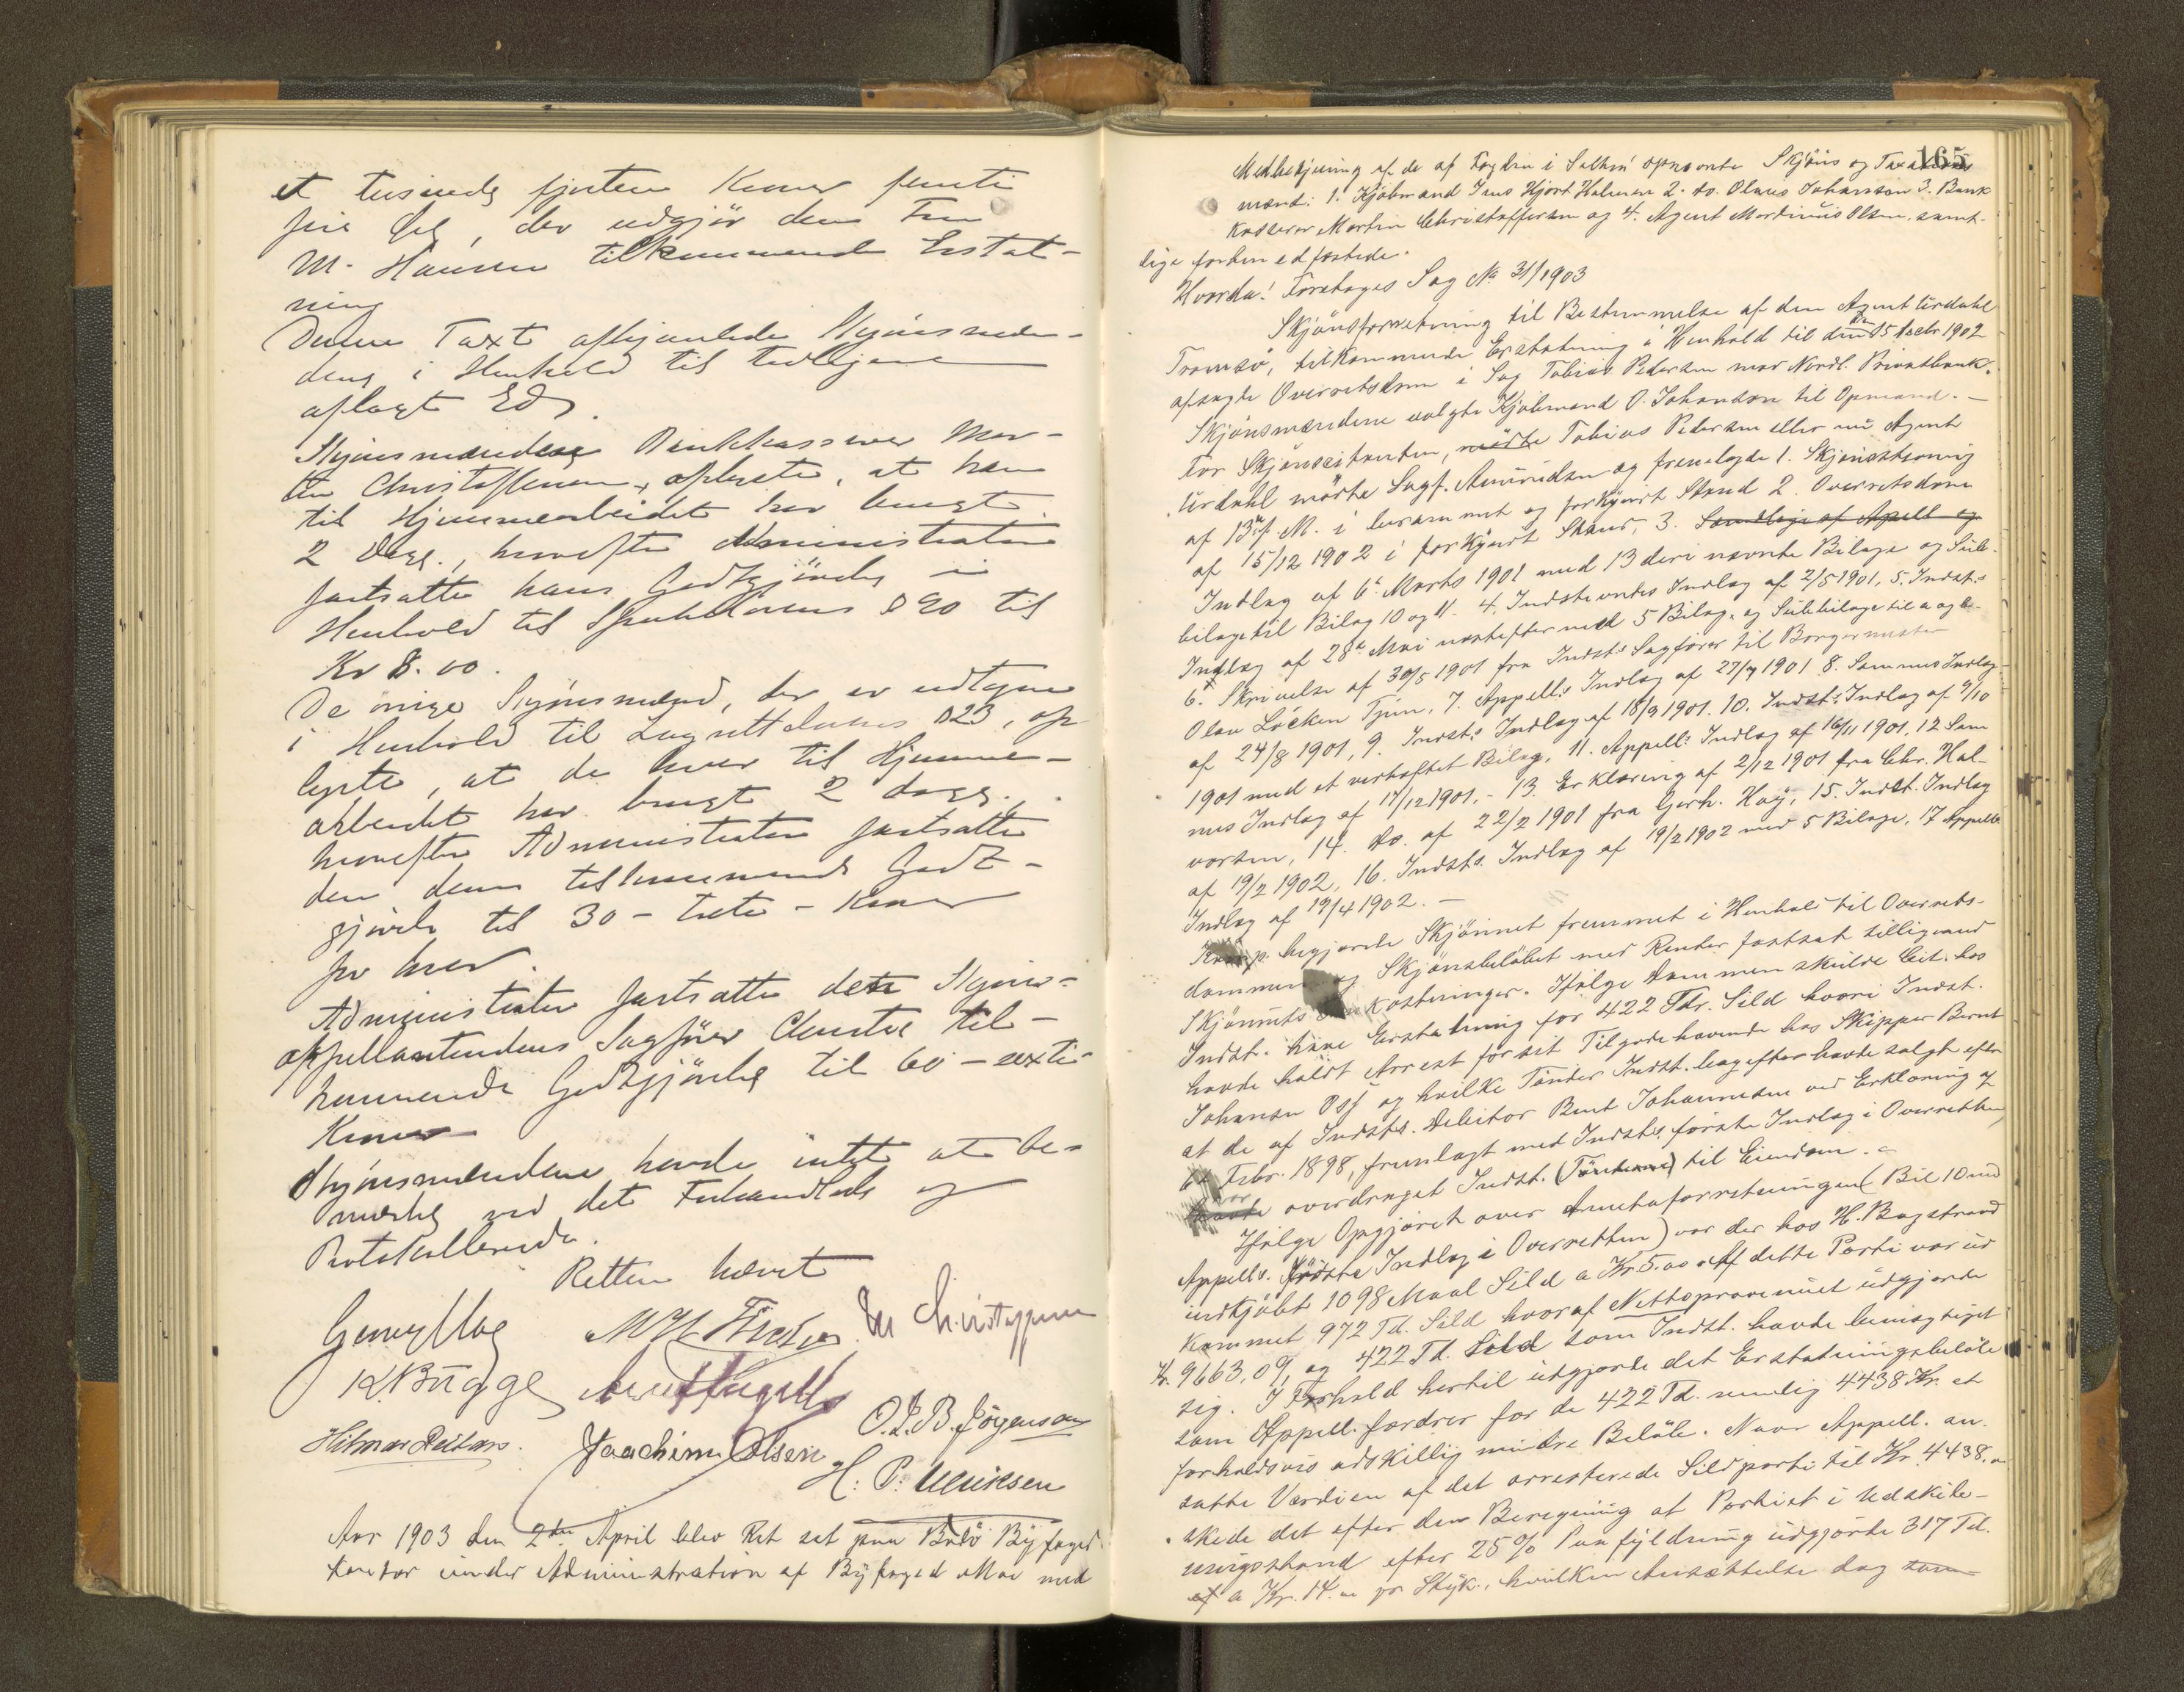 et tusinde fjorten Kroner femti
fire Øre, der udgjør den Fru
M. Hansen tilkommende Erstat-
ning
Denne Taxt afhjemlede Skjønsmæn-
dene i Henhold til tidligere
aflagt Ed.
Skjønsmændene Bankkasserer Mar-
tin Christoffersen, oplyste, at han
til Hjemmearbeidet har brugt
2 Dage, hvorefter Administrator
fastsatte hans Godtgjørelse i
Henhold til Sportellovens § 90 til
Kr 8.00.
De øvrige Skjønsmænd, der er udtagne
i Henhold til Lagrettelovens § 23, op
lyste, at de hver til Hjemme-
arbeidet har brugt 2 dage.
hvorefter Administrator fastsatte
den dem tilkommende Godt-
gjørelse til 30 - tretti - Kroner
for hver.
Administrator fastsatte dete Skjøns-
appellantendens Sagfører Christie til-
kommende Godtgjørelse til 60 - sexti
Kroner
Skjønsmændene havde intet at be-
mærke ved det Forhandlede og
Protokollerede.
Retten hævet
Georg Moe M H Fischer M Christoffersen
K. Bugge
O. J. B. Jörgensen
Hilmar Reitan. Joachim Olsen
H. P. Ulriksen
Aar 1903 den 2den April blev Ret sat paa Bodö Byfoged
kontor under Administration af Byfoged Moe med
165
Medbetjening af de af Fogden i Salten opnævnte Skjöns og Taxations
mænd: 1. Kjöbmand Jens Hjort Halmen 2. do. Olaus Johansson 3. Bank
kasserer Martin Christoffersen og 4. Agent Mordinius Olsen, samt-
lige forhen edfæstede.
Hvorda! Foretoges Sag No 31/1903
Skjönsforretning til Bestemmelse af den Agent Urdahl
Tromsö, tilkommende Erstatning i Henhold til den 15 Decbr 1902
afsagte Overretsdom i Sag Tobias Pedersen mod Nordl. Privatbank.
Skjönsmændene valgte Kjöbmand O. Johansson til Opmand. -
For Skjönscitanten, mödte Tobias Pedersen eller nu Agent
Urdahl mödte Sagf. Amundsen og fremlagde 1. Skjönsstevning
af 13 f. M. i beramment og forkyndt Stand 2. Overretsdom
af 15/12 1902 i forkyndt Stand, 3. Samtlige af Apell og
Indlæg af 6te Marts 1901 med 13 deri nævnte Bilage og Sub-
bilage til Bilag 10 og 11. 4. Indstevntes Indlæg af 2/5 1901, 5. Indst.s
Indlæg af 28de Mai næstefter med 5 Bilag, og Subbilage til a og b.
6. Skrivelse af 30/5 1901 fra Indst.s Sagförer til Borgermester
Olav Löcken Tjæn, 7. Appell.s Indlæg af 27/7 1901 8. Sammes Indlæg
af 24/8 1901, 9. Indst.s Indlæg af 18/9 1901. 10. Indst.s Indlæg af 9/10
1901 med et vedhæftet Bilag, 11. Appell.s Indlæg af 16/11 1901, 12 Sam
mes Indlæg af 17/12 1901, - 13. Erklæring af 2/12 1901 fra Chr. Hal-
vorsen, 14. do. af 22/2 1901 fra Gerh. Høy, 15. Indst. Indlæg
af 19/2 1902, 16. Indsts. Indlæg af 19/2 1902 med 5 Bilage, 17 Appells
Indlæg af 19/4 1902. -
Komp. begjærede Skjönnet fremmet i Henhold til Overrets-
dommen og Skjönsbelöbet med Renter fastsat tilligemed
Skjönnets Omkostninger. Ifölge Dommen skulde Cit. hos
Indst. have Erstatning for 422 Tdr. Sild hvori Indst.
havde holdt Arrest for sit Tilgodehavende hos Skipper Bernt
Johansen Oss og hvilke Tönder Indst. bagefter havde solgt efter
at de af Indsts. Debitor Bent Johannesen ved Erklæring af
6te Febr. 1898, fremlagt med Indsts förste Indlæg i Overretten,
var overdraget Indst. (Tönderne) til Eiendom. -
Ifölge Opgjöret over Arrestforretningen (Bil 10 med
Appells. förste Indlæg i Overretten) var der hos H. Bagstrand
indkjöbt 1098 Maal Sild a Kr. 5.00. Af dette Parti var ud
kommet 972 Td. Sild hvoraf Nettoprovenuet udgjorde
Kr. 9663,09, og 422 Td. Sild som Indst. havde bemægtiget
sig. I Forhold hertil udgjorde det Erstatningsbelöb
som Appell. fordrer for de 422 Td. nemlig 4438 Kr. et
forholdsvis adskillig mindre Belöb. Naar Appell. an-
satte Værdien af det arresterede Sildparti til Kr. 4438.00
skede det efter den Beregning at Partiet i Udskib-
ningsstand efter 25 % Paafyldning udgjorde 317 Td.
af a Kr. 14.00 pr Styk., hvilken Ansættelse dog som